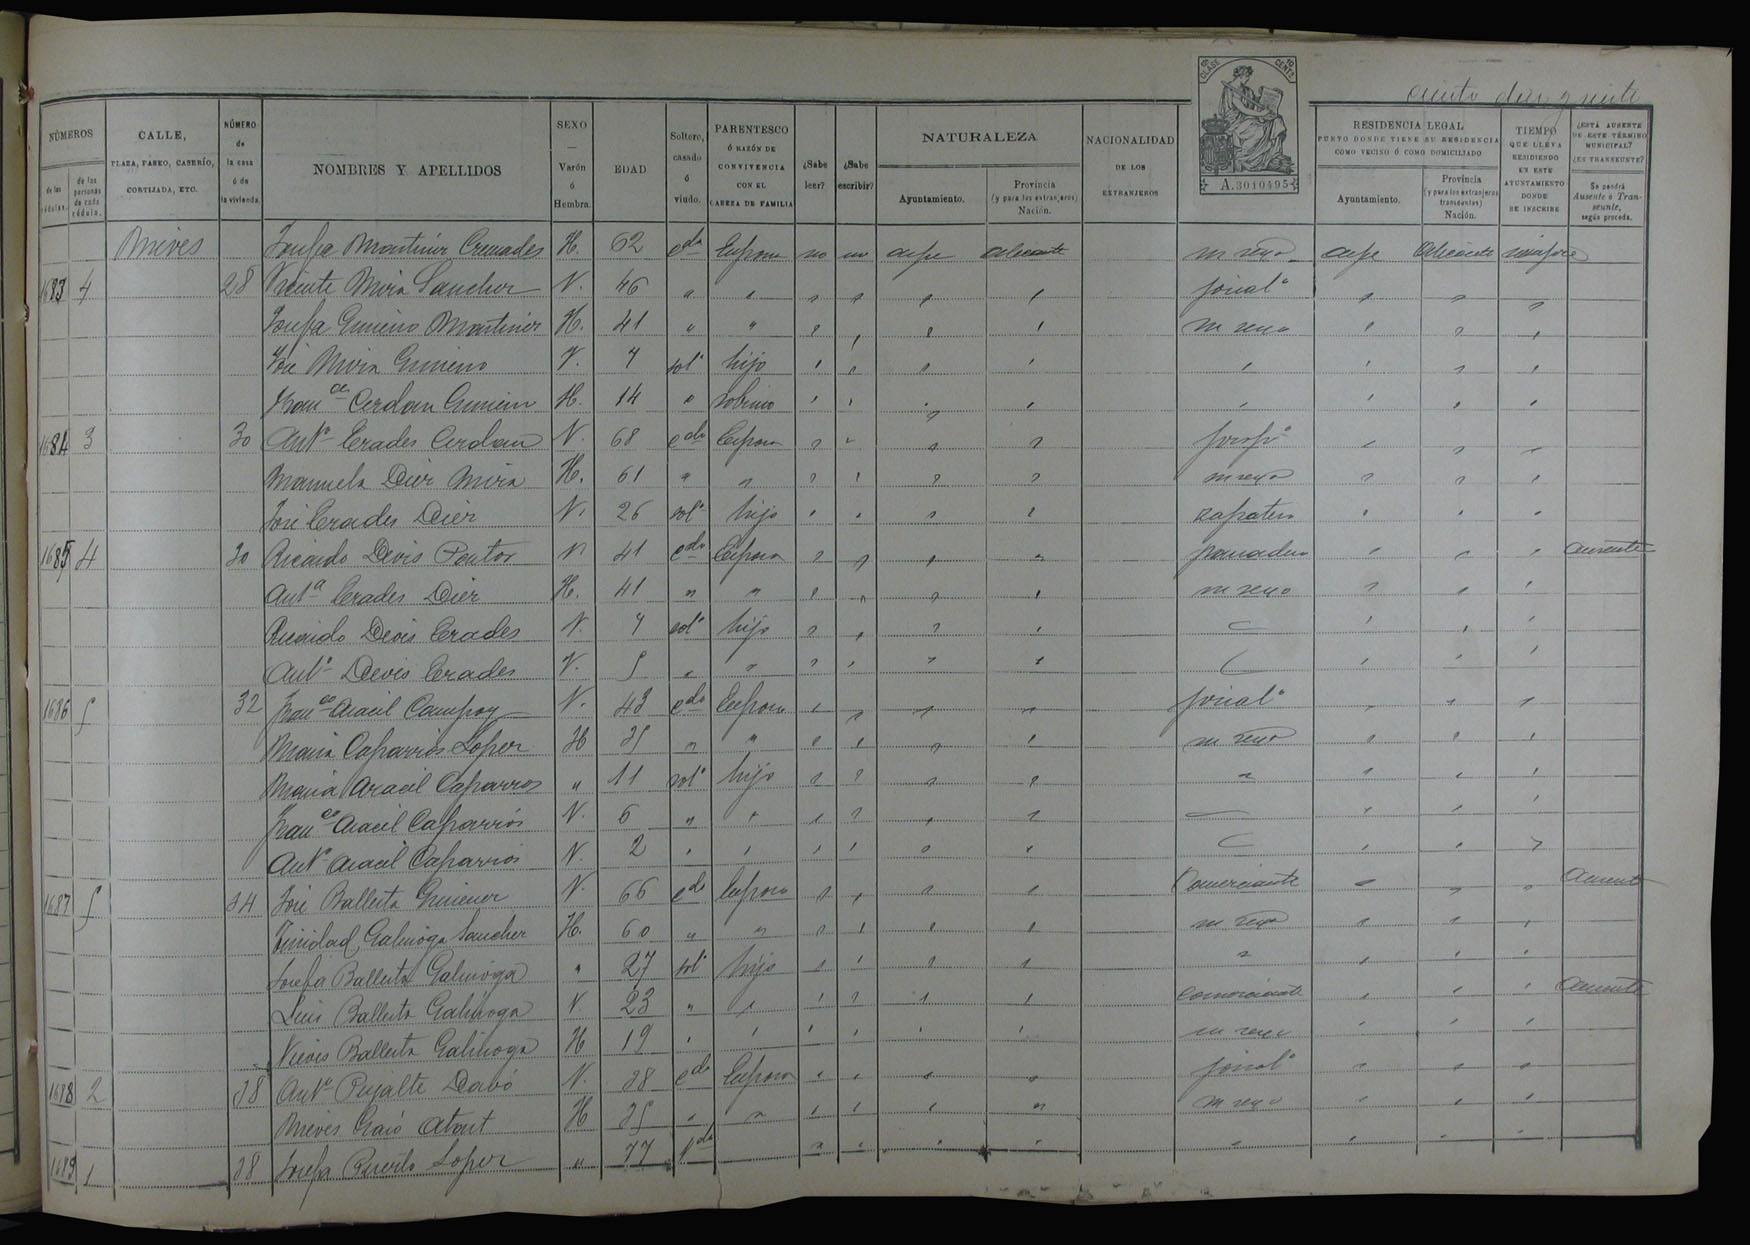 ciento diez y siete
10ª CLASE 10 CENTS
A.3010495
NÚMEROS
de las cédulas.
de las personas de cada cédula.
CALLE,
PLAZA, PASEO, CASERÍO,
CORTIJADA, ETC.
NÚMERO de la casa ó de la vivienda.
NOMBRES Y APELLIDOS
SEXO
—
Varón ó Hembra.
EDAD
Soltero, casado ó viudo.
PARENTESCO
Ó RAZÓN DE
CONVIVENCIA
CON EL
CABEZA DE FAMILIA
¿Sabe leer?
¿Sabe escribir?
NATURALEZA
Ayuntamiento.
Provincia
(y para los extranjeros)
Nación.
NACIONALIDAD
DE LOS
EXTRANJEROS
RESIDENCIA LEGAL
PUNTO DONDE TIENE SU RESIDENCIA
COMO VECINO Ó COMO DOMICILIADO
Ayuntamiento.
Provincia
(y para los extranjeros transeuntes)
Nación.
TIEMPO
QUE LLEVA
RESIDIENDO
EN ESTE
AYUNTAMIENTO
DONDE
SE INSCRIBE
¿ESTÁ AUSENTE
DE ESTE TÉRMINO
MUNICIPAL?
¿ES TRANSEUNTE?
Se pondrá
Ausente ó Transeunte,
según proceda.
Nieves Josefa Martinez Cremades H. 62 cda Esposa no no aspe alicante su sexo aspe alicante siempre
1683 4 28 Vicente Mira Sanchez V. 46 " " " " " " jornalº " " "
Josefa Gimeno Martinez H. 41 " " " " " " su sexo " " "
José Mira Gimeno V. 7 solº hijo " " " " " " " "
Franca Cerdan Gimeno H. 14 " sobrino " " " " " " " "
1684 3 30 Antº Erades Cerdan V. 68 cdo Esposo " " " " " " "
Manuela Dier Mira H. 61 " " " " " " su sexo " " "
José Erades Dier V. 26 solº hijo " " " " zapatero " " "
1685 4 30 Ricardo Devis Pontor V 41 cdo Esposo " " " " panadero " " " ausente
Antª Erades Dier H. 41 " " " " " " su sexo " " "
Ricardo Devis Erades V. 7 solº hijo " " " " " " "
Antº Devis Erades V. 5 " " " " " " " " "
1686 5 32 Franco Aracil Campoy V. 43 cdo Esposo " " " " jornalº " " "
Maria Caparros Lopez H 35 " " " " " " su sexo " " "
Maria Aracil Caparros " 11 solº hijo " " " " " " " "
Franco Aracil Caparrós V. 6 " " " " " " " " "
Antº Aracil Caparrós V. 2 " " " " " " " " "
1687 5 34 José Ballesta Gimenez V. 66 cdo Esposo " " " " Comerciante " " " Ausente
Trinidad Galiñoga Sanchez H. 60 " " " " " " su sexo " " "
Josefa Ballesta Galiñoga " 27 solº hijo " " " " " " " "
Luis Ballesta Galiñoga V. 23 " " " " " " Comerciante " " " Ausente
Nieves Ballesta Galiñoga H 19 " " " " " " su sexo " " "
1688 2 38 Antº Pujalte Davó V. 38 cdo Esposo " " " " jornalº " " "
Nieves H 35 " " " " " " su sexo " " "
1689 1 38 Josefa Puerto Lopez " 77 Vda " " " " " " " "